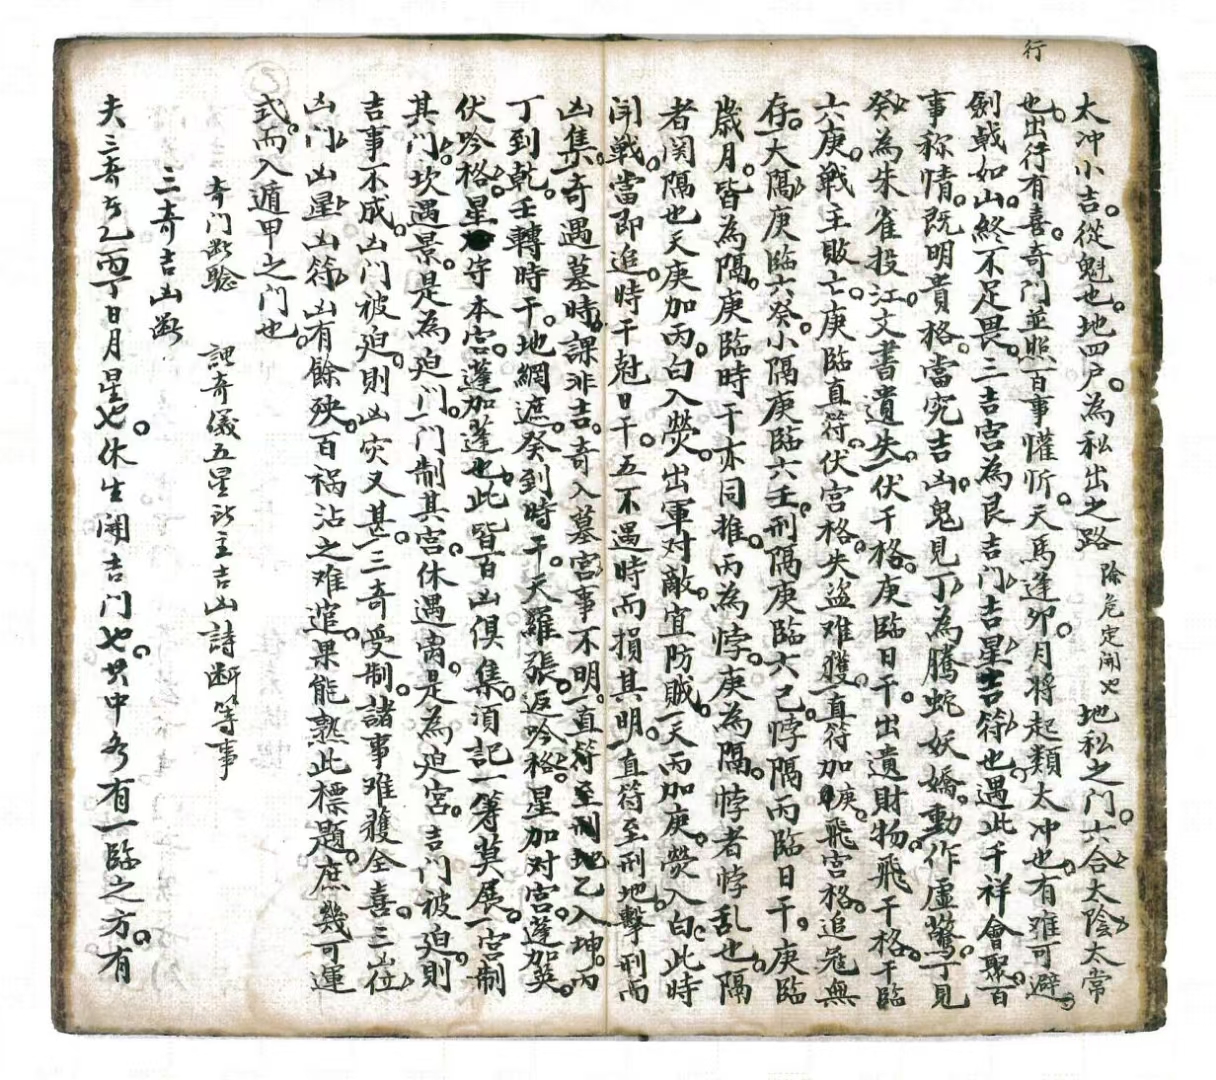 行
太冲小吉。從魁也。地四户。為私出之路。除危定開也 地私之门。六合太陰太常
也。出行有喜。奇门並照。百事懽忻。天馬逢卯。月将起類。太冲也。有难可避。
劍戟如山。終不足畏。三吉宫為良。吉门吉星吉符也。遇此千祥會聚。百
事称情。既明貴格。當究吉凶。鬼見丁為騰蛇妖嬌。動作虚驚。丁見
癸為朱雀投江。文書遺失。伏干格。庚臨日干。出遺財物。飛干格。干臨
六庚。戰主敗亡。庚臨直符。伏宫格。失盗难獲。直符加庚。飛宫格。追冦無
存。大隔庚臨六癸。小隔庚臨六壬。刑隔庚臨六己。悖隔丙臨日干。庚臨
歲月。皆為隔。庚臨時干亦同推。丙為悖。庚為隔。悖者悖乱也。隔
者関隔也。天庚加丙。白入熒。出軍对敵。宜防贼。天丙加庚。熒入白。此時
闭戰。當即追。時干尅日干。五不遇時而損其明。直符至刑地擊刑而
凶集。奇遇墓時。課非吉。奇入墓宫事不明。直符至刑地乙入坤。丙
丁到乾。壬轉時干。地網遮。癸到時干。天羅張。返吟格。星加对宫。蓬加英。
伏吟格。星守本宫。蓬加蓬也。此皆百凶俱集。須記一筹莫展。一宫制
其门。坎遇景。是為迫门。一门制其宫。休遇离。是為迫宫。吉门被迫。則
吉事不成。凶门被迫。則凶灾又甚。三奇受制。諸事难獲全喜。三凶位
凶门凶星凶符。凶有餘殃。百祸沾之难逭。果能熟此標題。庶幾可運
式。而入遁甲之门也。
奇门断驗 詿奇儀五星所主吉凶詩断等事
三奇吉凶断
夫三奇者乙丙丁日月星也。休生開吉门也。其中多有一臨之方。有